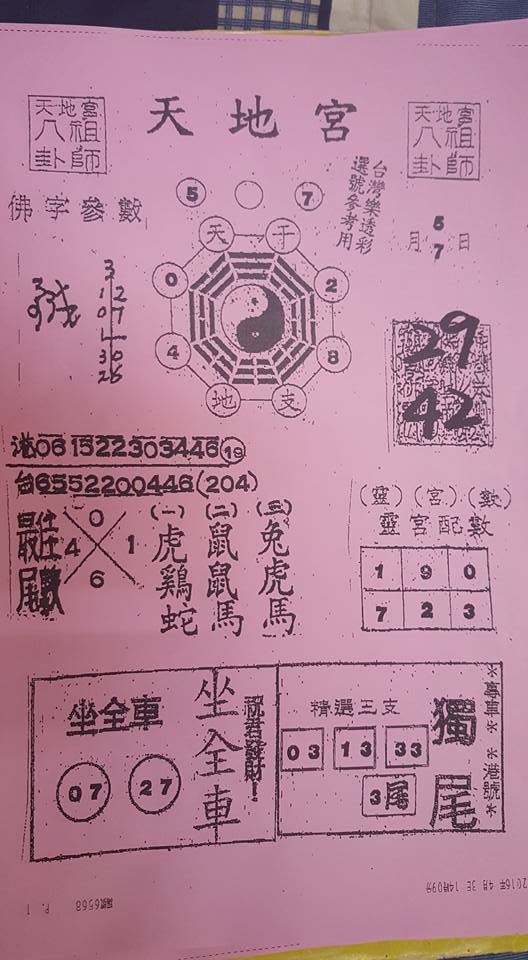 天地宮
八祖
卦師
天地宮
天地宮
八祖
卦師
佛字參數
5 7
台灣樂透彩
選號參考用
5
月 日
7
天 干
0 2
4 8
地 支
3
12
07
30
26
29
42
港061522303446 19
台6552200446(204)
最佳
尾數
0
4 1
6
(一) (二) (三)
虎 鼠 兔
鷄 鼠 虎
蛇 馬 馬
(靈)(宮)(數)
靈宮配數
1 9 0
7 2 3
坐全車
07 27
坐全車
祝君發財!
精選三支
03 13 33
3尾
獨尾
*專車* *港號*
2016年 4月 3日 14時09分
編號6568 P. 1